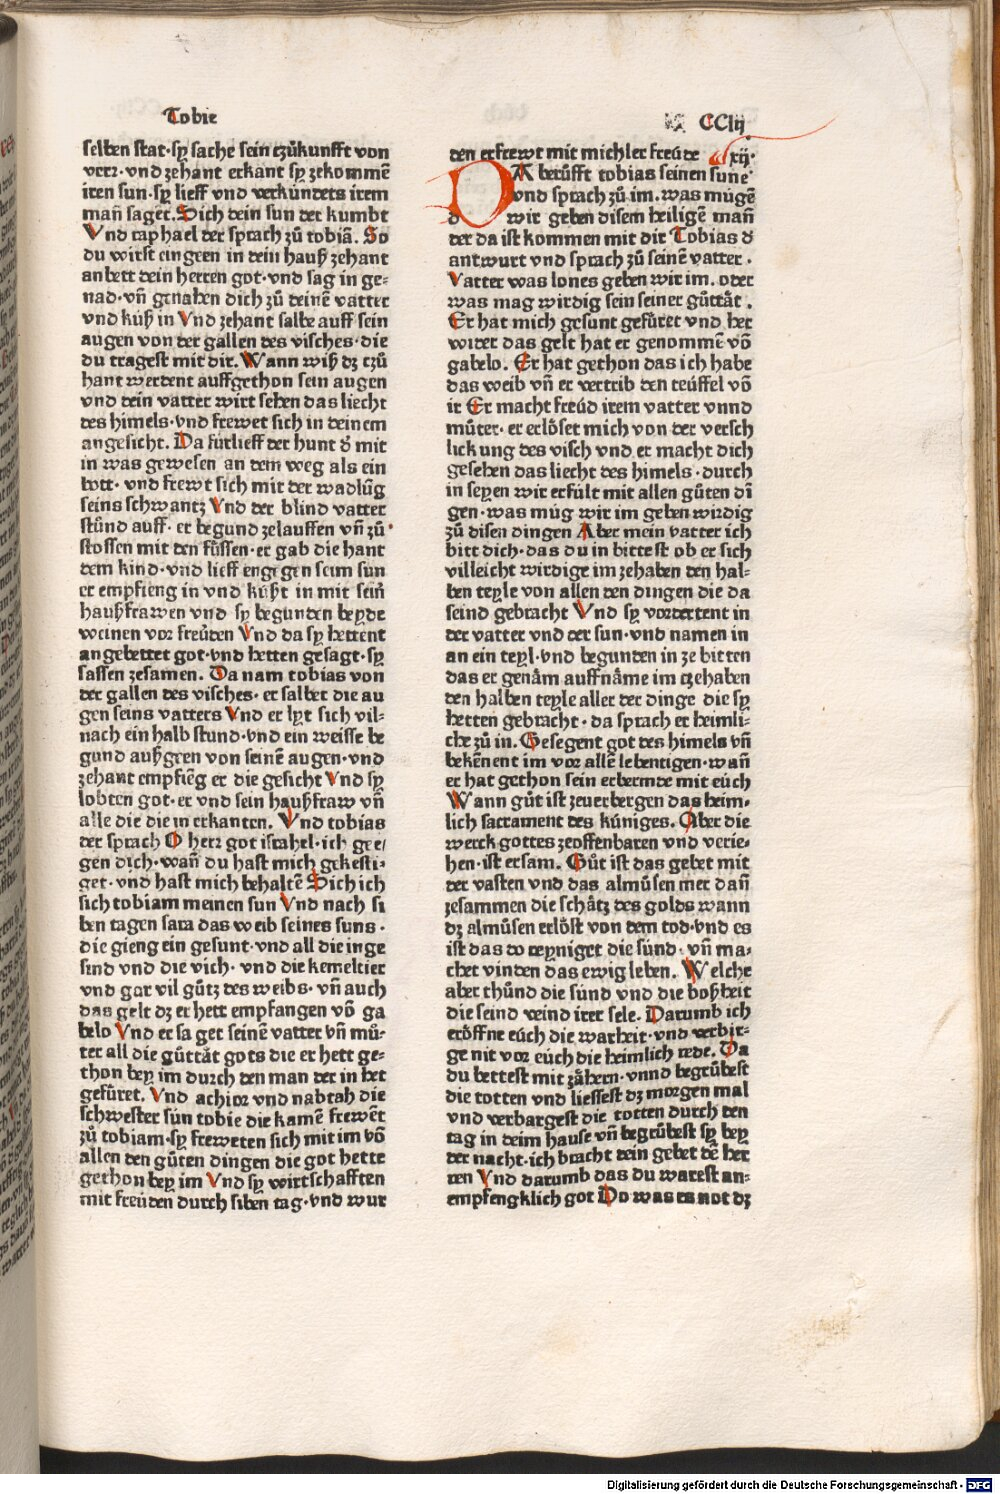 Tobie
CCLij
selben stat·sy sache sein czůkunfft von
verr·vnd zehant erkant sy zekommē
iren sun·sy lieff vnd verkúndets irem
mañ saget. Sich dein sun der kumbt
Vnd raphael der sprach zů tobiā. So
du wirst eingeen in dein hauß zehant
anbett dein herren got·vnd sag in ge⸗
nad·vñ genahen dich zů deinē vatter
vnd kúß in Vnd zehant salbe auff sein
augen von der gallen des visches·die
du tragest mit dir. Wann wiß dz czů
hant werdent auffgethon sein augen
vnd dein vatter wirt sehen das liecht
des himels·vnd frewet sich in deinem
angesicht. Da fúrlieff der hunt d̕ mit
in was gewesen an dem weg als ein
bott·vnd frewt sich mit der wadlūg
seins schwantz Vnd der blind vatter
stůnd auff·er begund zelauffen vñ zů
stossen mit den fůssen·er gab die hant
dem kind·vnd lieff engegen seim sun
er empfieng in vnd kúßt in mit sein̄
haußfrawen vnd sy begunden beyde
weinen vor freúden Vnd da sy hettent
angebettet got·vnd hetten gesagt·sy
sassen zesamen. Da nam tobias von
der gallen des visches·er salbet die au
gen seins vatters Vnd er lyt sich vil⸗
nach ein halb stund·vnd ein weisse be
gund außgeen von seinē augen·vnd
zehant empfieg er die gesicht Vnd sy
lobten got·er vnd sein haußfraw vñ
alle die die in erkanten. Vnd tobias
der sprach O herr got israhel·ich gee⸗
gen dich·wañ du hast mich gekesti⸗
get·vnd hast mich behaltē Sich ich
sich tobiam meinen sun Vnd nach si
ben tagen sara das weib seines suns·
die gieng ein gesunt·vnd all die inge
sind vnd die vich·vnd die kemeltier
vnd gar vil gůtz des weibs·vñ auch
das gelt dz er hett empfangen vō ga
belo Vnd er saget seinē vatter vñ mů⸗
ter all die gůttåt gots die er hett ge⸗
thon bey im durch den man der in het
gefúret. Vnd achior vnd nabtah die
schwester sún tobie die kamē frewēt
zů tobiam·sy freweten sich mit im vō
allen den gůten dingen die got hette
gethon bey im Vnd sy wirtschafften
mit freúden durch siben tag·vnd wur
den erfrewt mit michler freúde xij·
DA berůfft tobias seinen sune
vnd sprach zů im. was múgē
wir geben disem heiligē mañ
der da ist kommen mit dir Tobias d̕
antwurt vnd sprach zů seinē vatter.
Vatter was lones geben wir im. oder
was mag wirdig sein seiner gůttåt.
Er hat mich gesunt gefúret vnd her
wider das gelt hat er genommē vō
gabelo. Er hat gethon das ich habe
das weib vñ er vertrib den teúffel vō
ir Er macht freúd irem vatter vnnd
můter·er erlőset mich von der versch
lickung des visch vnd er macht dich
gesehen das liecht des himels·durch
in seyen wir erfúlt mit allen gůten dī
gen·was múg wir im geben wirdig
zů disen dingen Aber mein vatter ich
bitt dich·das du in bittest ob er sich
villeicht wirdige im zehaben den hal⸗
ben teyle von allen den dingen die da
seind gebracht Vnd sy vordertent in
der vatter vnd der sun·vnd namen in
an ein teyl·vnd begunden in ze bitten
das er genåm auffnåme im czehaben
den halben teyle aller der dinge die sy
hetten gebracht·da sprach er heimli⸗
che zů in. Gesegent got des himels vñ
bekēnent im vor allē lebentigen·wañ
er hat gethon sein erbermde mit eúch
Wann gůt ist zeuerbergen das heim⸗
lich sacrament des kúniges. Aber die
werck gottes zeoffenbaren vnd verie⸗
hen·ist ersam. Gůt ist das gebet mit
der vasten vnd das almůsen mer dañ
zesammen die schåtz des golds wann
dz almůsen erlőst von dem tod·vnd es
ist das do reyniget die súnd·vñ ma⸗
chet vinden das ewig leben. Welche
aber thůnd die súnd vnd die boßheit
die seind veind irer sele. Darumb ich
erőffne eúch die warheit·vnd verbir⸗
ge nit vor eúch die heimlich rede. Da
du bettest mit zåhern·vnnd begrůbest
die totten vnd liessest dz morgen mal
vnd verbargest die totten durch den
tag in deim hause vñ begrůbest sy bey
der nacht·ich bracht dein gebet dē her
ren Vnd darumb das du warest an⸗
empfengklich got Do was es not dz
Digitalisierung gefördert durch die Deutsche Forschungsgemeinschaft - DFG